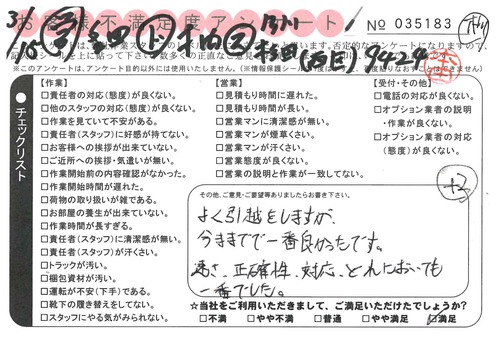 お客様不満足度アンケート
No 035183
3/15
9424
チェックリスト
【作業】
□責任者の対応(態度)が良くない。
□他のスタッフの対応(態度)が良くない。
□作業を見ていて不安がある。
□責任者(スタッフ)に好感が持てない。
□お客様への挨拶が出来ていない。
□ご近所への挨拶・気遣いが無い。
□作業開始前の内容確認がなかった。
□作業開始時間が遅れた。
□荷物の取り扱いが雑である。
□お部屋の養生が出来ていない。
□作業時間が長すぎる。
□責任者(スタッフ)に清潔感が無い。
□責任者(スタッフ)が汗くさい。
□トラックが汚い。
□梱包資材が汚い。
□運転が不安(下手)である。
□靴下の履き替えをしてない。
□スタッフにやる気がみられない。
【営業】
□見積もり時間に遅れた。
□見積もり時間が長い。
□営業マンに清潔感が無い。
□営業マンが煙草くさい。
□営業マンが汗くさい。
□営業態度が良くない。
□営業の説明と作業が一致してない。
【受付・その他】
□電話の対応が良くない。
□オプション業者の説明・作業が良くない。
□オプション業者の対応(態度)が良くない。
その他、ご意見・ご要望等ありましたらお書き下さい。
よく引越をしますが、
今までで一番良かったです。
速さ、正確性、対応、どれにおいても
一番でした。
☆当社をご利用いただきまして、ご満足いただけたでしょうか?
□不満 □やや不満 □普通 □やや満足 ☑満足